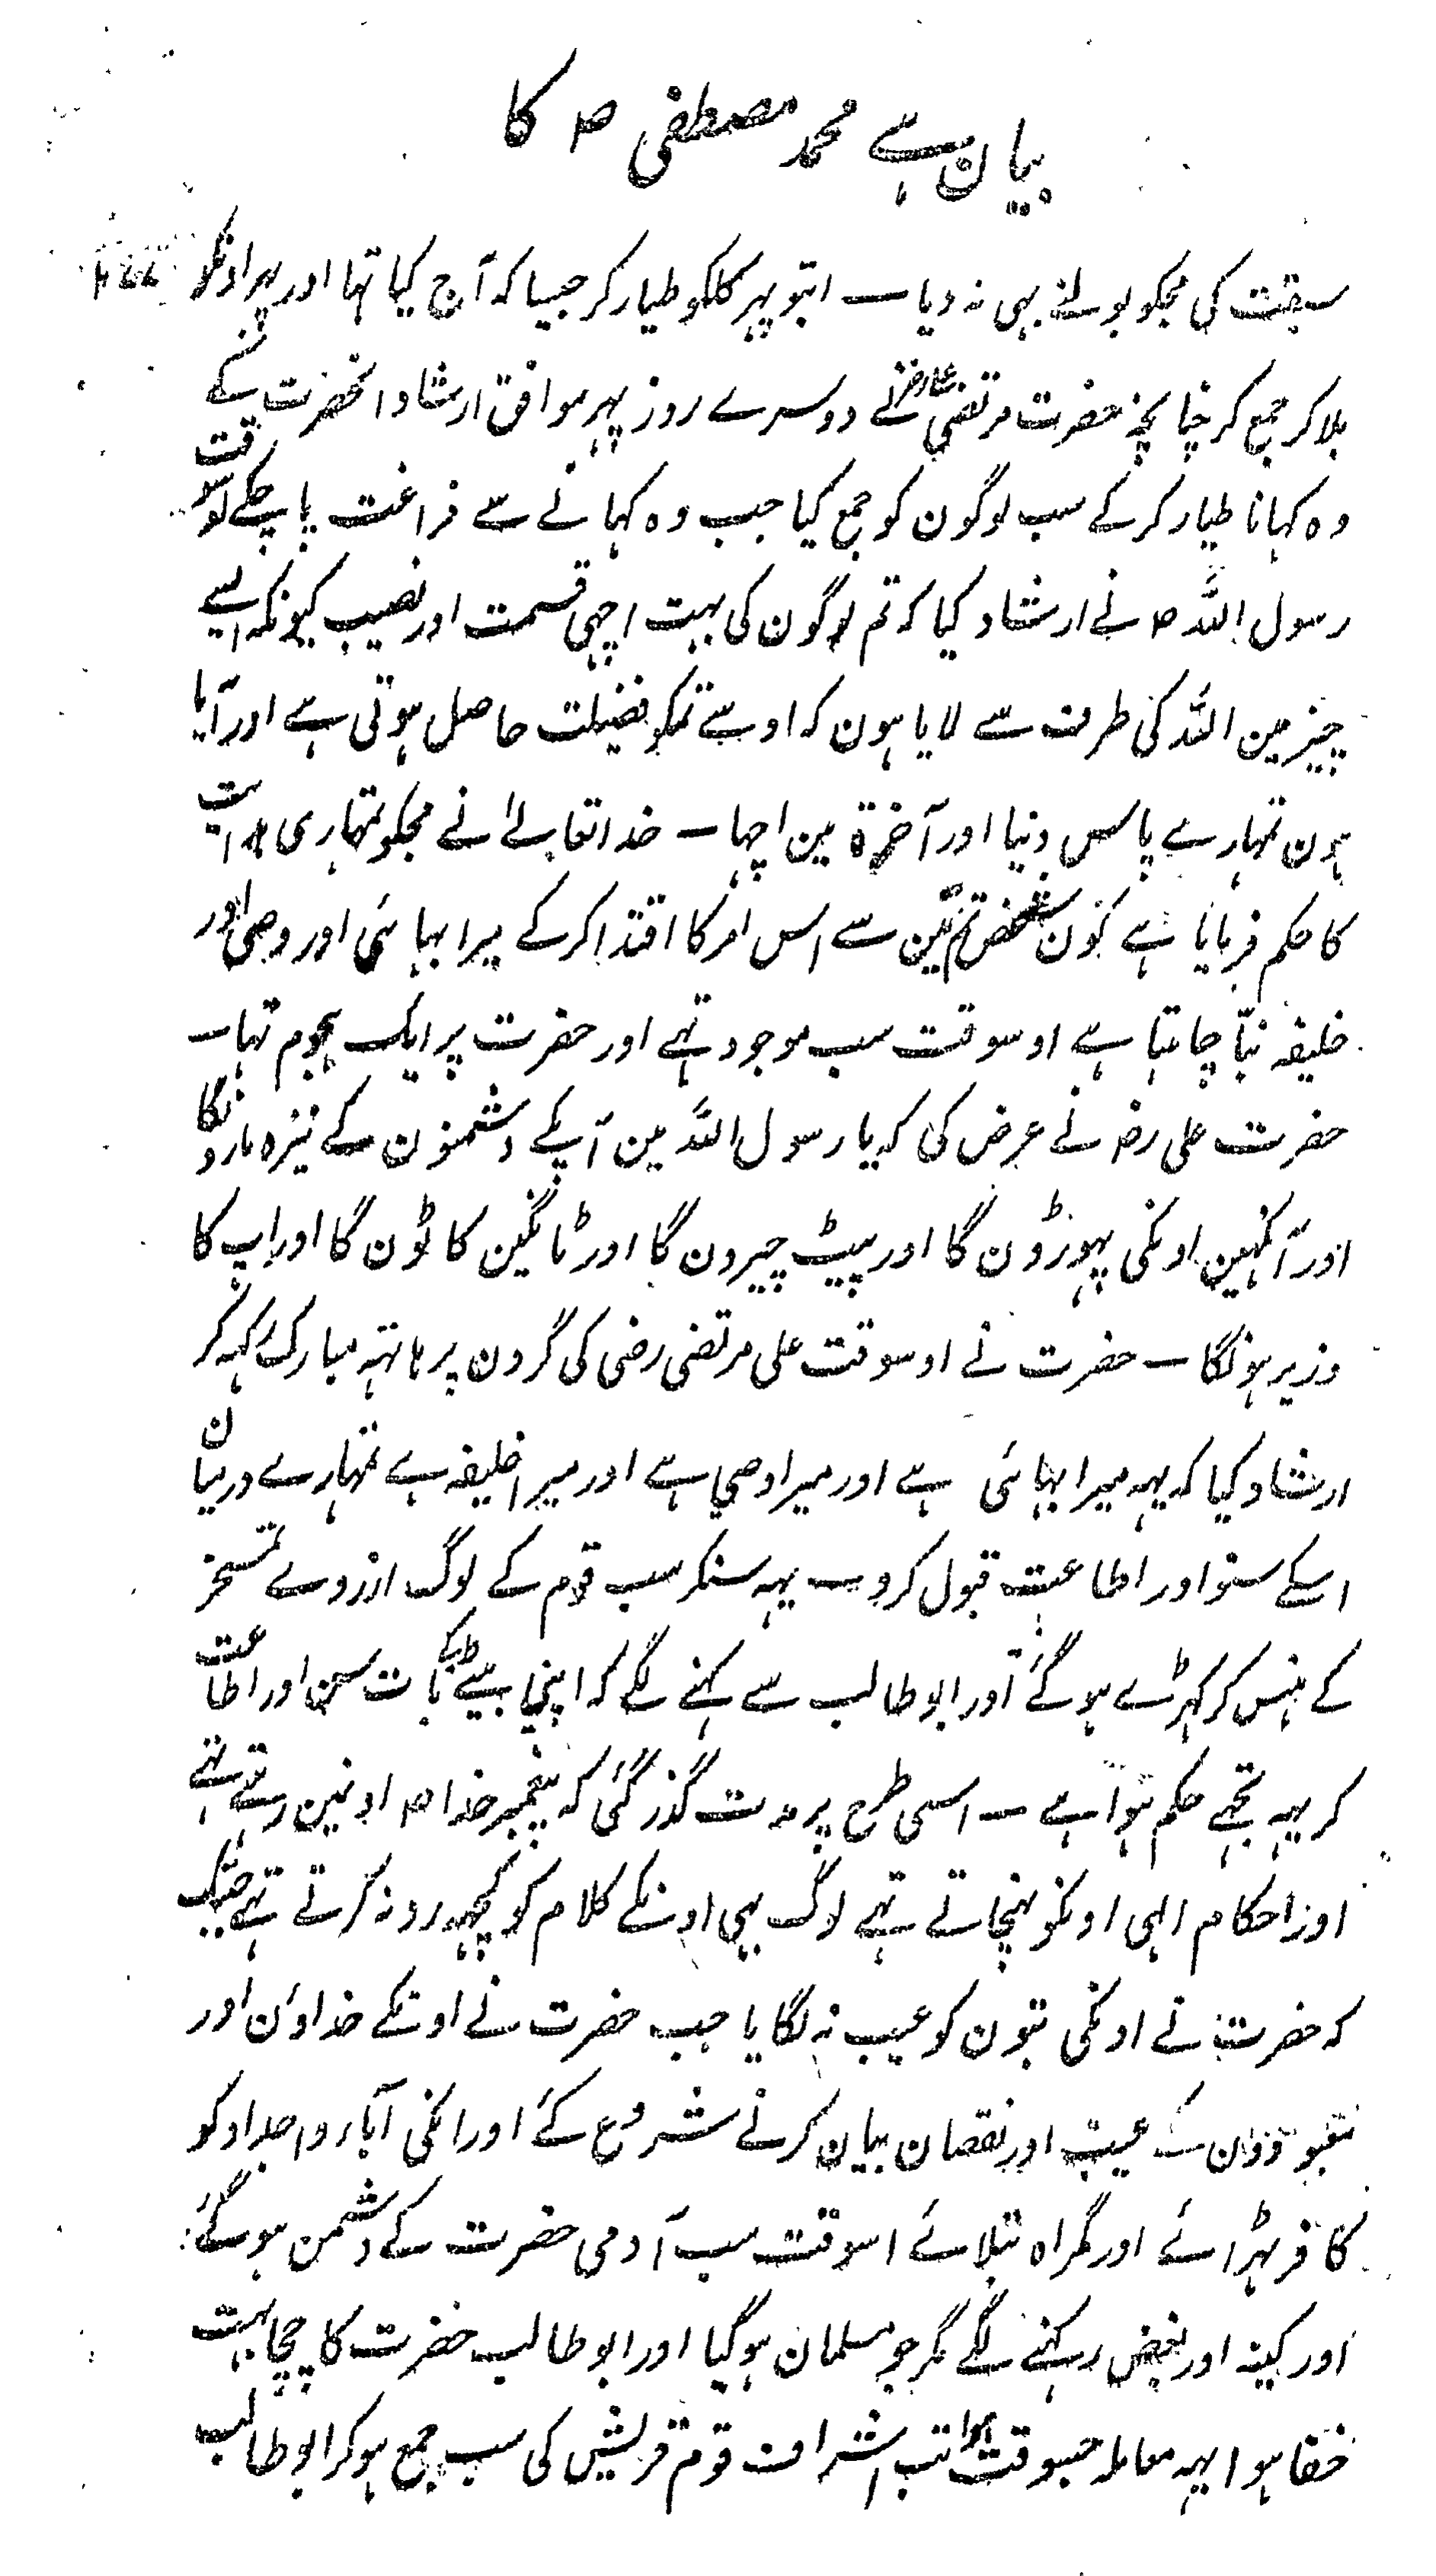 بیان ہے محمد مصطفی ص کا
سبقت کی مجکو بولنے بہی نہ دیا — ابتو پہر کلکو طیار کر جیسا کہ آج کیا تہا اور پہر اونکو
بلا کر جمع کر چنانچہ حضرت مرتضی علی رض نے دوسرے روز پہر موافق ارشاد انحضرت کے
وہ کہانا طیار کر کے سب لوگون کو جمع کیا جب وہ کہانے سے فراغت پا چکے اوسوقت
رسول اللہ ص نے ارشاد کیا کہ تم لوگون کی بہت اچہی قسمت اور نصیب کیونکہ ایسے
چیز مین اللہ کی طرف سے لایا ہون کہ اوسے تمکو فضیلت حاصل ہوتی ہے اور آیا
ہون تمہارے پاس دنیا اور آخرۃ مین اچہا — خدا تعالےٰ نے مجکو تمہاری ہدایت
کا حکم فرمایا ہے کون شخص تم مین سے اس امر کا اقتدا کر کے میرا بہائی اور وصی اور
خلیفہ بنّا چاہتا ہے اوسوقت سب موجود تہے اور حضرت پر ایک ہجوم تہا —
حضرت علی رض نے عرض کی کہ یا رسول اللہ مین آپکے دشمنون کے نیزہ مارونگا
اور آنکہین اونکی پہوڑون گا اور پیٹ چیرون گا اور ٹانگین کاٹون گا اور اپ کا
وزیر ہونگا — حضرت نے اوسوقت علی مرتضی رضی کی گردن پر ہاتہہ مبارک رکہہ کر
ارشاد کیا کہ یہہ میرا بہائی ہے اور میرا وصی ہے اور میرا خلیفہ ہے تمہارے درمیان
اسکے سنو اور اطاعت قبول کرو — یہہ سنکر سب قوم کے لوگ ازروے تمسخر
کے ہنس کر کہڑے ہو گئے اور ابو طالب سے کہنے لگے کہ اپنی بیٹے کی بات سن اور اطاعت
کر یہہ تجہے حکم ہوا ہے — اسی طرح پر مدت گذر گئی کہ پیغمبر خدا ص اونمین رہتے تہے
اور احکام الہی اونکو پہنچاتے تہے لوگ بہی اونکے کلام کو کچہہ رد نہ کرتے تہے جبتک
کہ حضرت نے اونکی بتون کو عیب نہ لگایا جب حضرت نے اونکے خداؤن اور
معبودون کے عیب اور نقصان بیان کرنے شروع کئے اور انکی آباء و اجداد کو
کافر ٹہرائے اور گمراہ بتلائے اسوقت سب آدمی حضرت کے دشمن ہو گئے
اور کینہ اور بغض رکہنے لگے مگر جو مسلمان ہو گیا اور ابو طالب حضرت کا چچا بہت
خفا ہوا یہہ معاملہ جسوقت ہوا تب اشراف قوم قریش کی سب جمع ہو کر ابو طالب